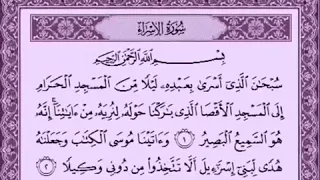 سُورَةُ الإِسْرَاءِ
بِسْمِ اللَّهِ الرَّحْمَٰنِ الرَّحِيمِ
سُبْحَٰنَ الَّذِي أَسْرَىٰ بِعَبْدِهِ لَيْلًا مِّنَ الْمَسْجِدِ الْحَرَامِ
إِلَى الْمَسْجِدِ الْأَقْصَا الَّذِي بَٰرَكْنَا حَوْلَهُ لِنُرِيَهُ مِنْ ءَايَٰتِنَا إِنَّهُ
هُوَ السَّمِيعُ الْبَصِيرُ ١ وَءَاتَيْنَا مُوسَى الْكِتَٰبَ وَجَعَلْنَٰهُ
هُدًى لِّبَنِي إِسْرَٰءِيلَ أَلَّا تَتَّخِذُوا مِن دُونِي وَكِيلًا ٢